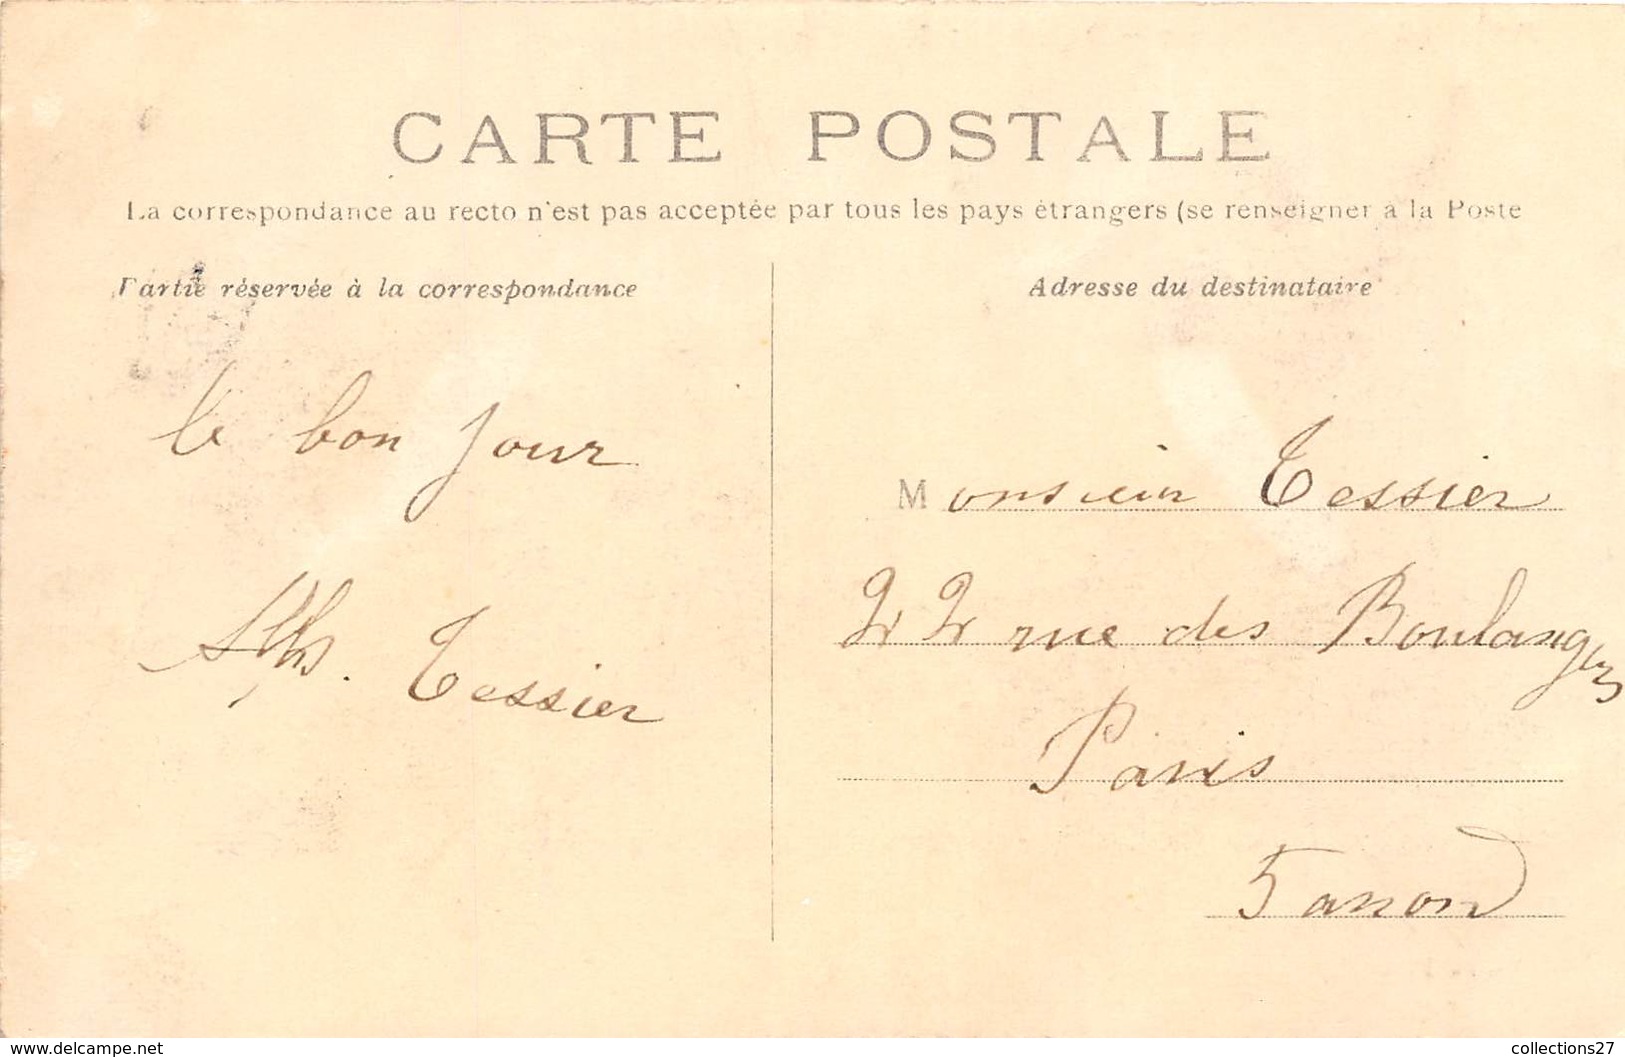 CARTE POSTALE
La correspondance au recto n'est pas acceptée par tous les pays étrangers (se renseigner à la Poste
Partie réservée à la correspondance
le bon jour
Tessier
Adresse du destinataire
Monsieur Tessier
22 rue des Boulangers
Paris
5 arrond
www.delcampe.net
collections27